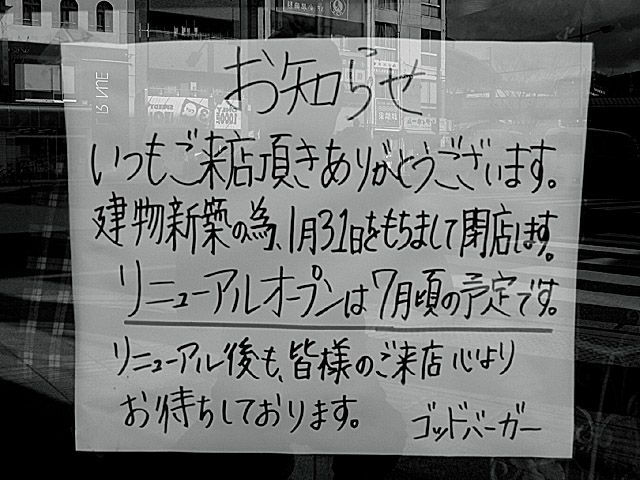 お知らせ
いつもご来店頂きありがとうございます。
建物新築の為、1月31日をもちまして閉店します。
リニューアルオープンは7月頃の予定です。
リニューアル後も、皆様のご来店心より
お待ちしております。
ゴッドバーガー